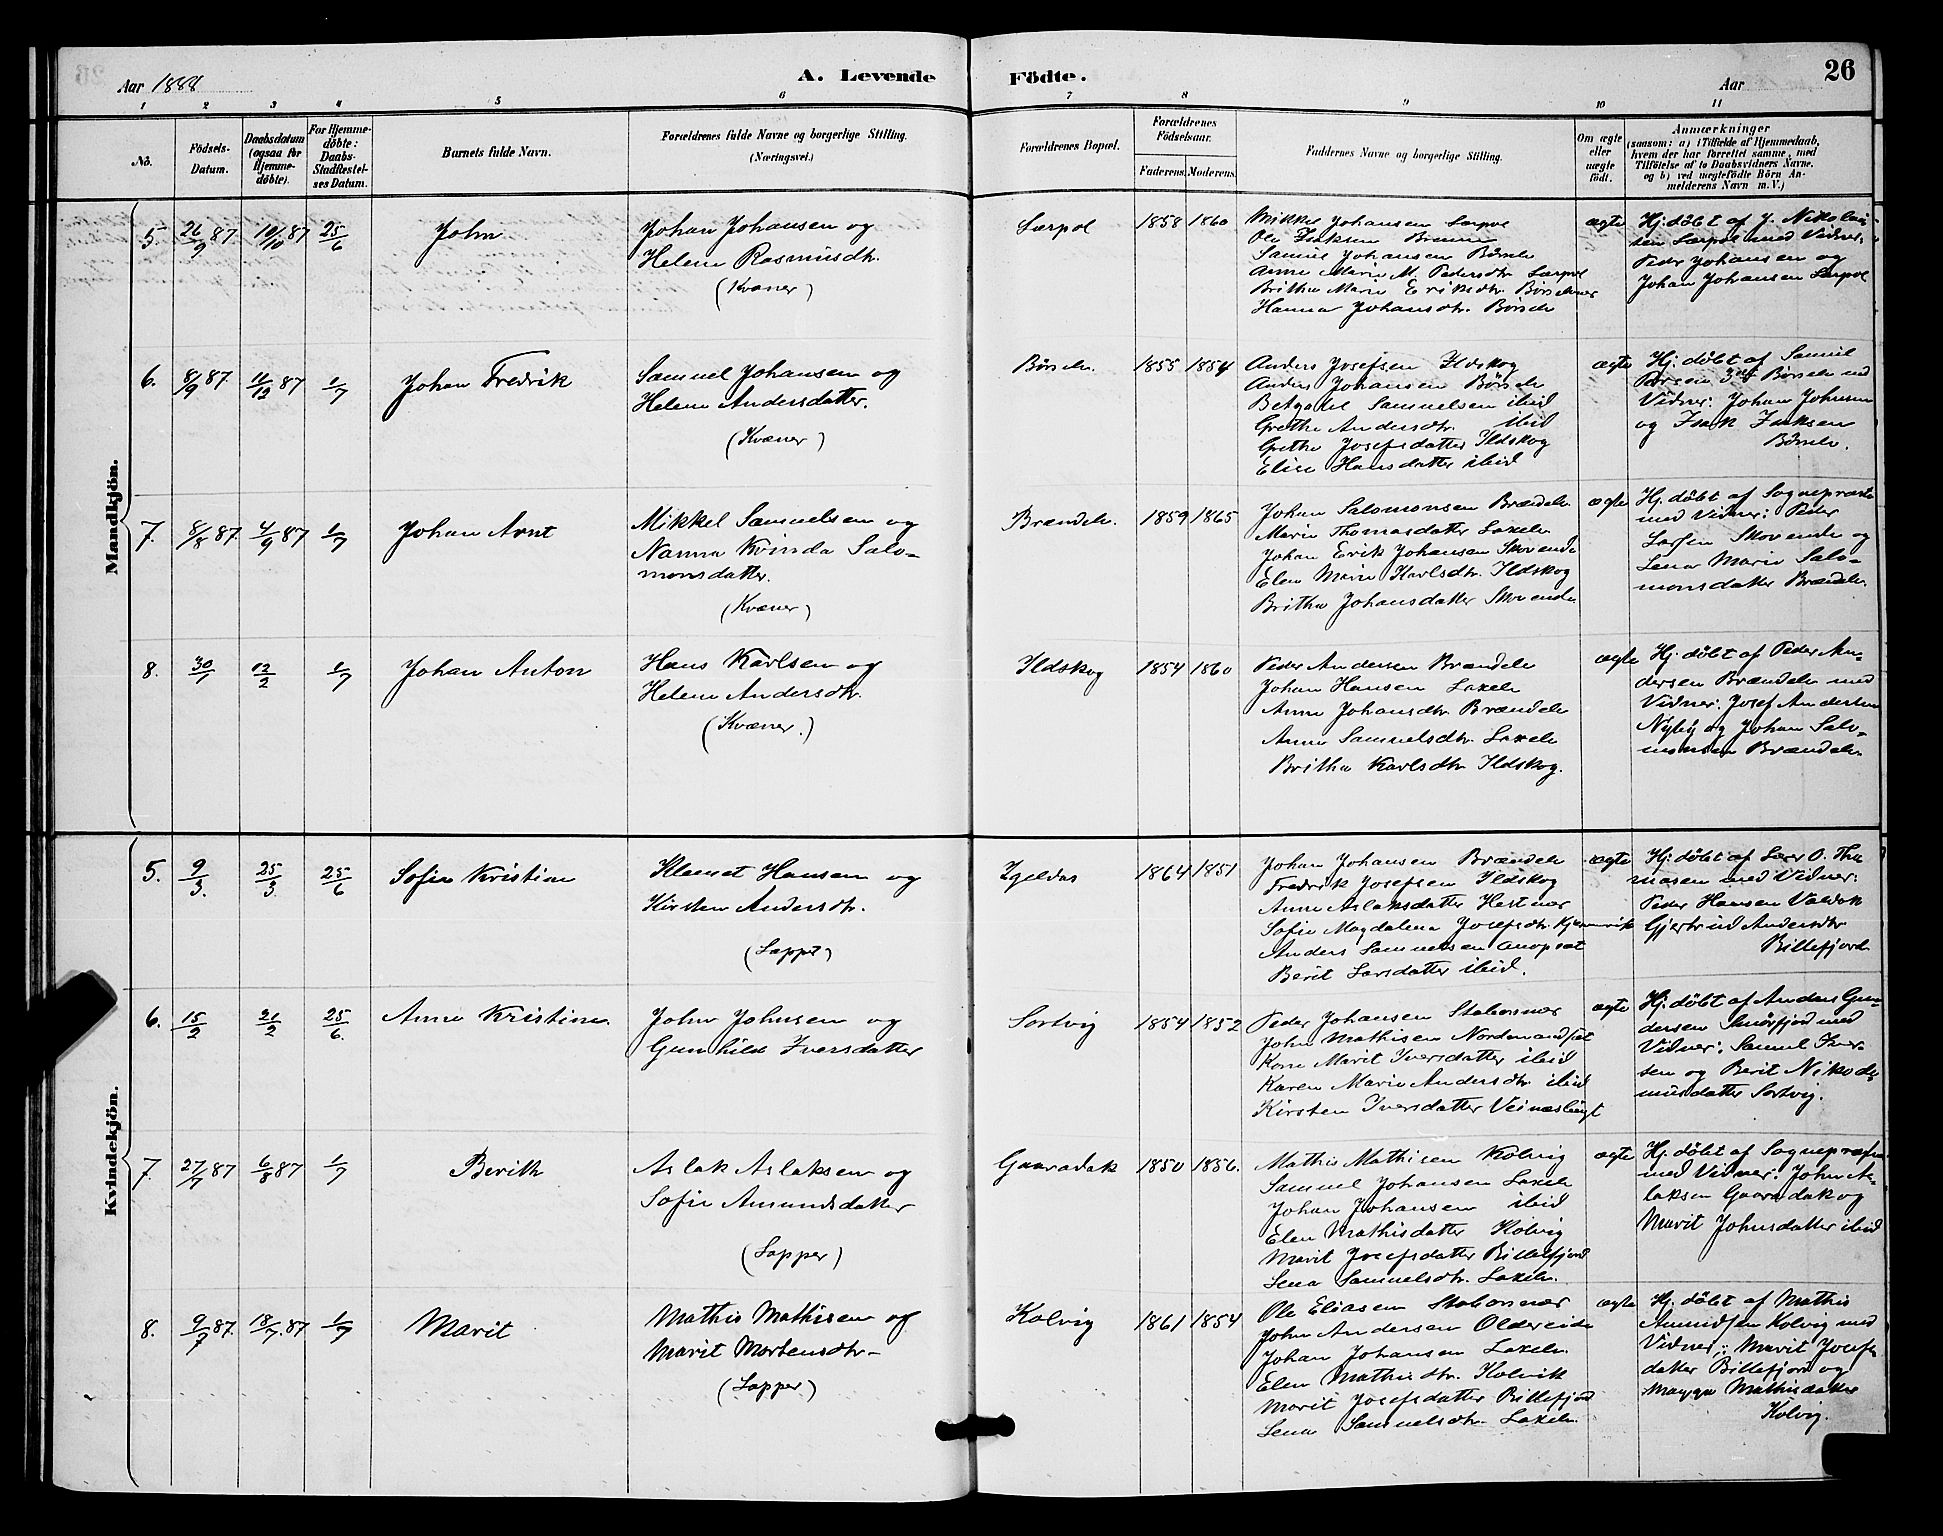 Aar 1888
A. Levende Födte.
Aar
26
1 2 3 4 5 6 7 8 9 10 11
No.
Födsels-Datum.
Daabsdatum (ogsaa for Hjemme-döbte).
For Hjemme-döbte: Daabs-Stadfæstel-ses Datum.
Barnets fulde Navn.
Forældrenes fulde Navne og borgerlige Stilling. (Næringsvei.)
Forældrenes Bopæl.
Forældrenes Födselsaar.
Faderens. Moderens.
Faddernes Navne og borgerlige Stilling.
Om ægte eller uægte födt.
Anmærkninger
(saasom: a) i Tilfælde af Hjemmedaab,
hvem der har forrettet samme, med
Tilföielse af to Daabsvidners Navne,
og b) ved uægtefödte Börn An-
melderens Navn m. V.)
Mandkjön.
5. 26/9 87 10/10 87 25/6 John
Johan Johansen og
Helene Rasmusdtr.
(Kvæner)
Særpol 1858 1860
Mikkel Johansen Særpol
Ole Isaksen Brenna
Samuel Johansen Börselv
Anne Marie M. Pedersdtr. Særpol
Britha Marie Eriksdtr. Börselvnes
Hanna Johansdtr. Börselv
ægte
Hj. döbt af J. Nikolai-
sen Særpol med Vidner:
Peder Johansen og
Johan Johansen Særpol
6. 8/9 87. 11/12 87 1/7 Johan Fredrik
Samuel Johansen og
Helene Andersdatter.
(Kvæner)
Börselv. 1855 1854
Anders Josefsen Ildskog
Anders Johansen Börselv
Samuelsen ibid
Grethe Andersdtr. ibid
Grethe Josefsdatter Ildskog
Elise Hansdatter ibid
ægte
Hj. döbt af Samuel
Börselv med
Vidner: Johan Johnsen
og Isak Isaksen
Börselv.
7. 8/8 87. 4/9 87 1/7 Johan Arnt
Mikkel Samuelsen og
Nanna Kvinda Salo-
monsdatter.
(Kvæner)
Brændelv. 1859 1865
Johan Salomonsen Brændelv
Marie Thomasdatter Laxelv
Johan Erik Johansen Skovende
Elen Marie Karlsdtr. Ildskog
Britha Johansdatter Skovende
ægte
Hj. döbt af Sognepræsten
med Vidner: Peder
Larsen Skovende og
Lena Marie Salo-
monsdatter Brændelv.
8. 30/1 12/2 1/7 Johan Anton
Hans Karlsen og
Helene Andersdtr.
(Kvæner.)
Ildskog 1854 1860
Peder Andersen Brændelv
Johan Hansen Laxelv
Anne Johansdtr. Brændelv
Anne Samuelsdtr. Laxelv
Britha Karlsdtr. Ildskog.
ægte
Hj. döbt af Peder An-
dersen Brændelv med
Vidner: Josef Andersen
Nyby og Johan Salo-
monsen Brændelv.
Kvindekjön.
5. 9/3. 25/3. 25/6 Sofie Kristine
Klemet Hansen og
Kirsten Andersdtr.
(Lapper)
Igeldas 1864 1851
Johan Johansen Brændelv
Fredrik Josefsen Ildskog
Anne Aslaksdatter Hestnes
Sofie Magdalena Josefsdtr.
Anders Samuelsen
Berit Larsdatter ibid.
ægte
Hj. döbt af Lærer O. Tho-
masen med Vidner:
Peder Hansen
Gjertrud Andersdtr
Billefjord
6. 15/2 21/2 25/6. Anne Kristine.
John Johnsen og
Gunhild Iversdatter
Sortvig 1854 1852
Peder Johansen Stabursnes
John Mathisen Nordmandset
Marit Iversdatter ibid
Karen Marie Andersdtr. ibid
Kirsten Iversdatter
ægte
Hj. döbt af Anders Gun-
dersen Smörfjord med
Vidner: Samuel Iver-
sen og Berit Nikode-
musdatter Sortvig.
7. 27/7 87 6/8 87 1/7 Berith
Aslak Aslaksen og
Sofie Amundsdatter
(Lapper)
Gaaradak 1850 1856.
Mathis Mathisen Kolvig
Samuel Johansen Laxelv
Johan Johansen ibid
Elen Mathisdatter Kolvig
Marit Josefsdatter Billefjord
Lena Samuelsdtr. Laxelv.
ægte
Hj. döbt af Sognepræsten
med Vidner: John As-
laksen Gaaradak og
Marit Johnsdatter ibid
8. 9/7 87. 18/7 87 1/7 Marit
Mathis Mathisen og
Marit Mortensdtr.
(Lapper)
Kolvig 1861 1854
Ole Eliasen Stabursnes
John Andersen Oldereide
Johan Johansen Laxelv.
Elen Mathisdtr. Kolvik
Marit Josefsdatter Billefjord
Lena Samuelsdtr. Laxelv.
ægte
Hj. döbt af Mathis
Amundsen Kolvig med
Vidner: Marit Josefs-
datter Billefjord og
Magga Mathisdatter
Kolvig.